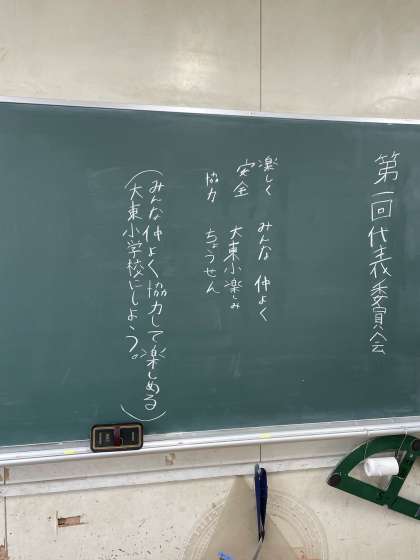 第一回代表委員会
楽しく みんな 仲よく
安全 大東小楽しみ
協力 ちょうせん
(みんな仲よく協力して楽しめる
大東小学校にしよう。)